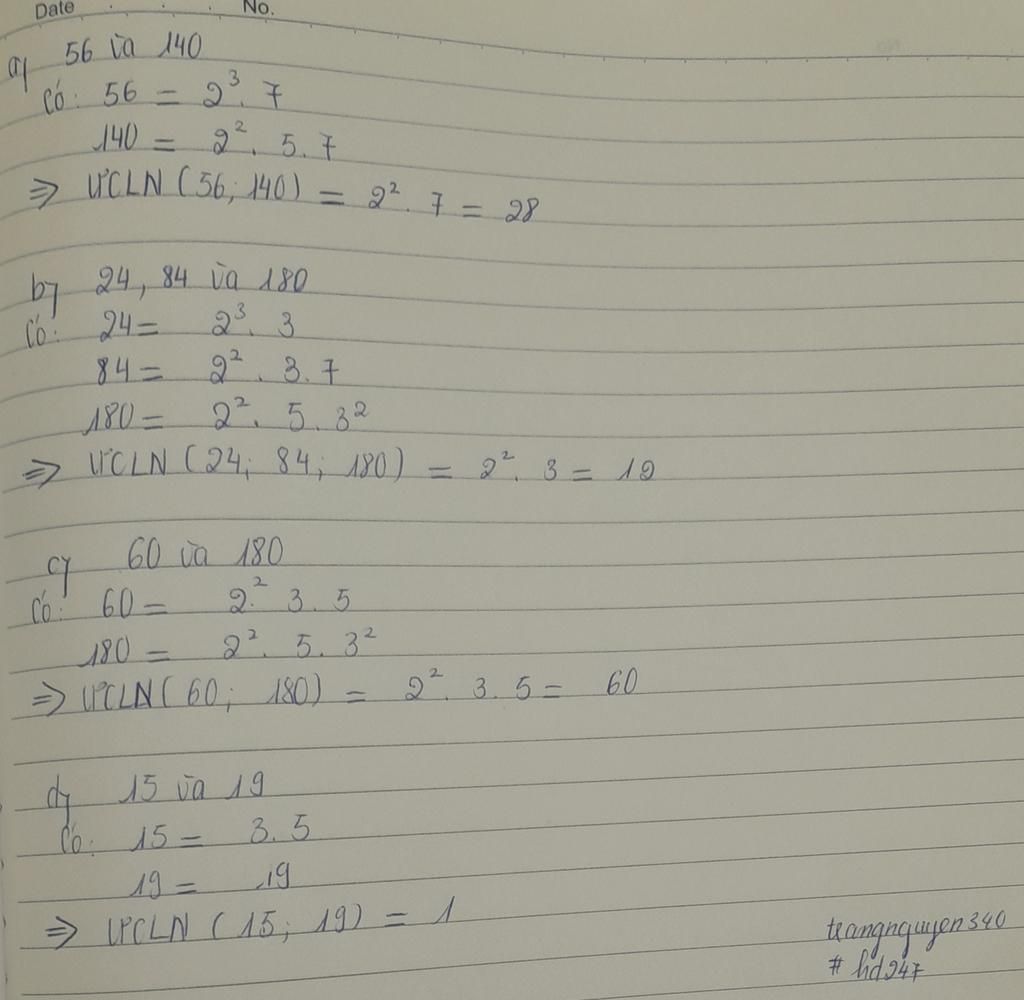 Date No.
a) 56 và 140
Có: 56 = 2³. 7
140 = 2². 5. 7
=> ƯCLN (56; 140) = 2². 7 = 28
b) 24, 84 và 180
Có: 24 = 2³. 3
84 = 2². 3. 7
180 = 2². 5. 3²
=> ƯCLN (24; 84; 180) = 2². 3 = 12
c) 60 và 180
Có: 60 = 2². 3. 5
180 = 2². 5. 3²
=> ƯCLN (60; 180) = 2². 3. 5 = 60
d) 15 và 19
Có: 15 = 3. 5
19 = 19
=> ƯCLN (15; 19) = 1
trangnguyen340
# hd247